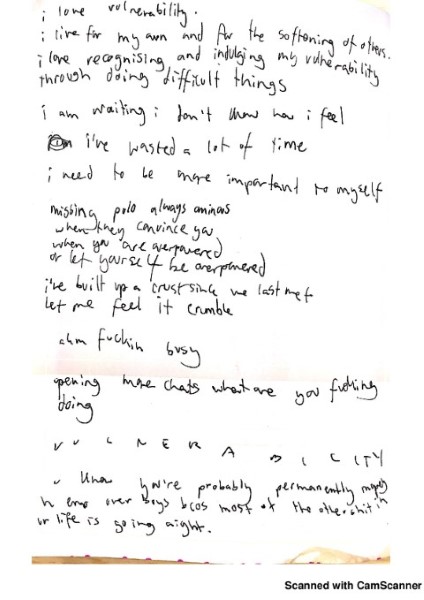 i love vulnerability.
i live for my own and for the softening of others.
i love recognising and indulging my vulnerability
through doing difficult things
i am waiting i don't know how i feel
i've wasted a lot of time
i need to be more important to myself
missing polo always
when they convince you
when you are overpowered
or let yourself be overpowered
i've built up a crust since we last met
let me feel it crumble
fuckin busy
opening more chats what are you fucking
doing
V U L N E R A B I L ITY
u know you're probably permanently
over boys bcos most of the other shit in
ur life is going aight.
Scanned with CamScanner